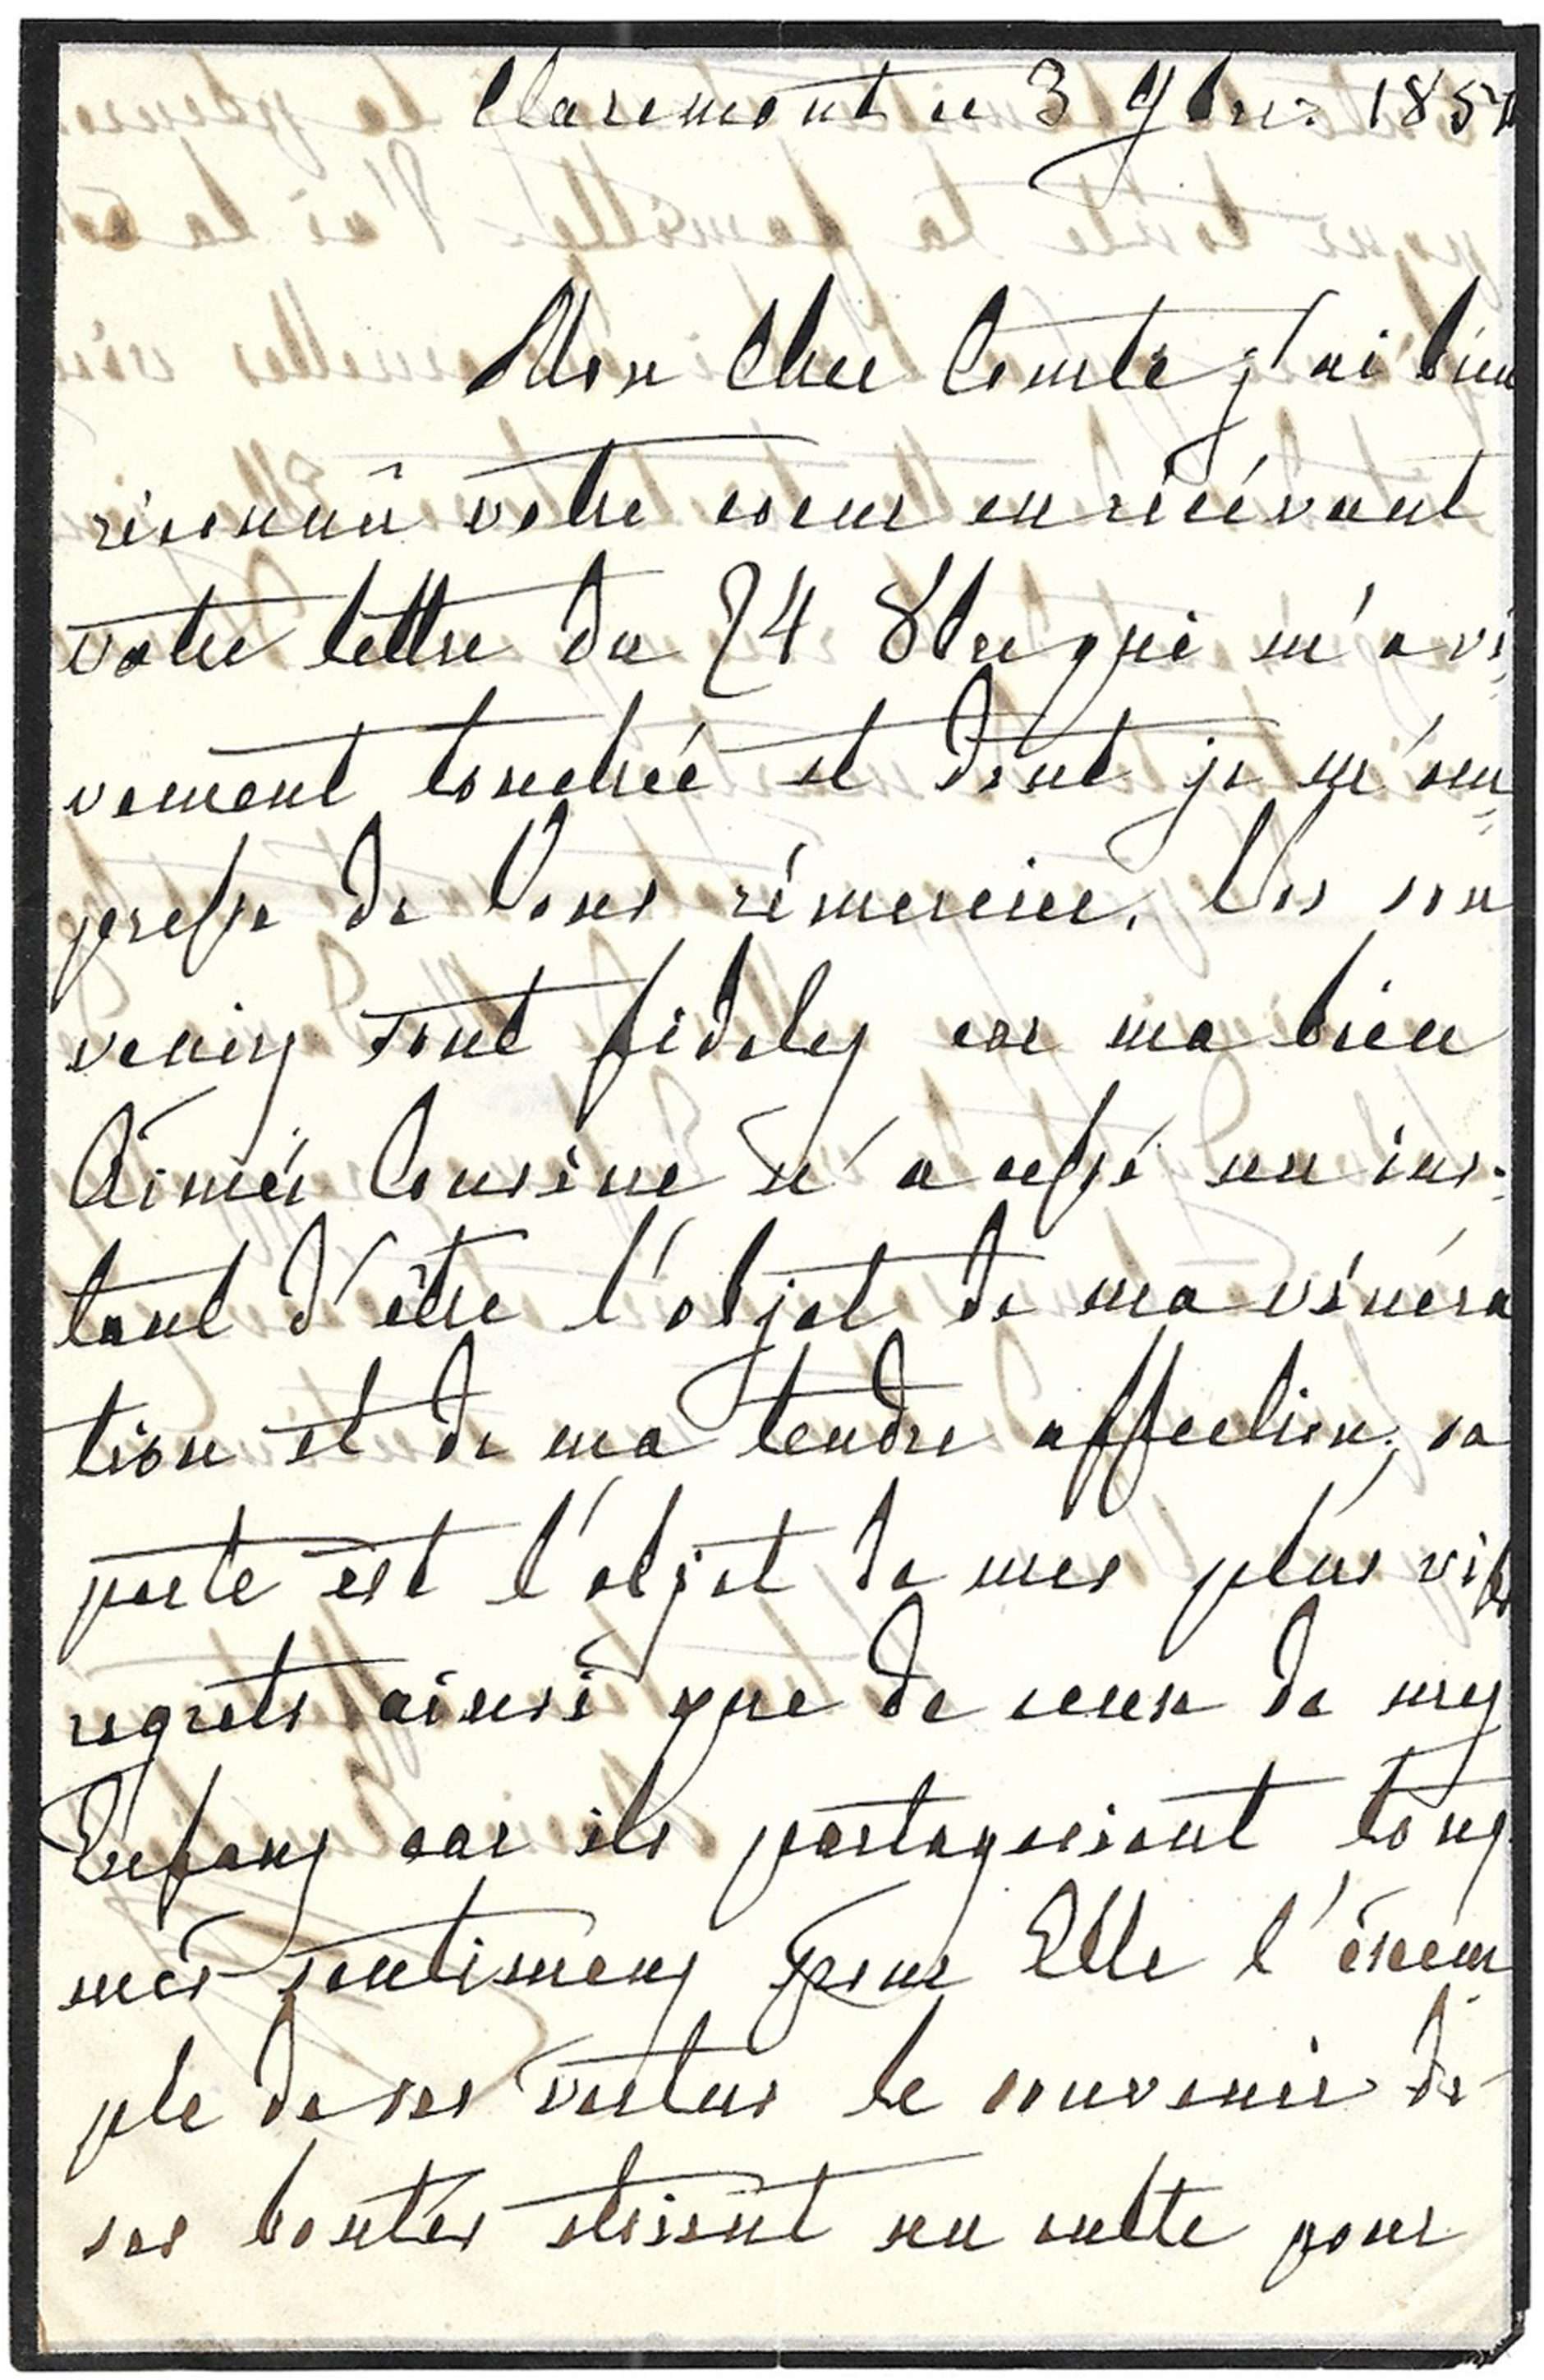 Claremont ce 3 9bre 185
Mon Cher Comte j'ai bien
réconnû votre coeur en récévant
votre lettre du 24 8bre qui m'a vi
vement touchée et dont je m'em
presse de Vous rémercier. Vos sou
venirs sont fideles car ma bien
Aimée Cousine n'a cessé un ins-
tant d'être l'objet de ma vénéra
tion et de ma tendre affection; sa
perte est l'objet de mes plus vifs
regrets ainsi que de ceux de mes
Enfans car ils partageoient tous
mes sentimens pour Elle l'exem
ple de ses vertus le souvenir de
ses bontés etoient un culte pour